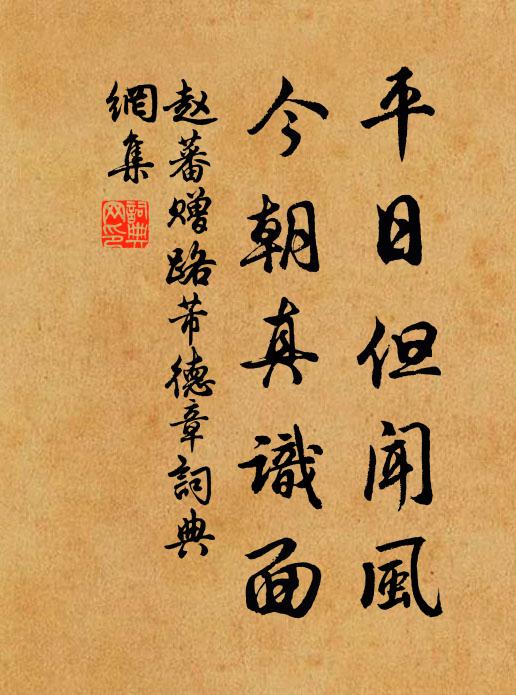 平日但闻風
今朝真識面
赵蕃赠路芾德章詞典
網集
詞典
网印